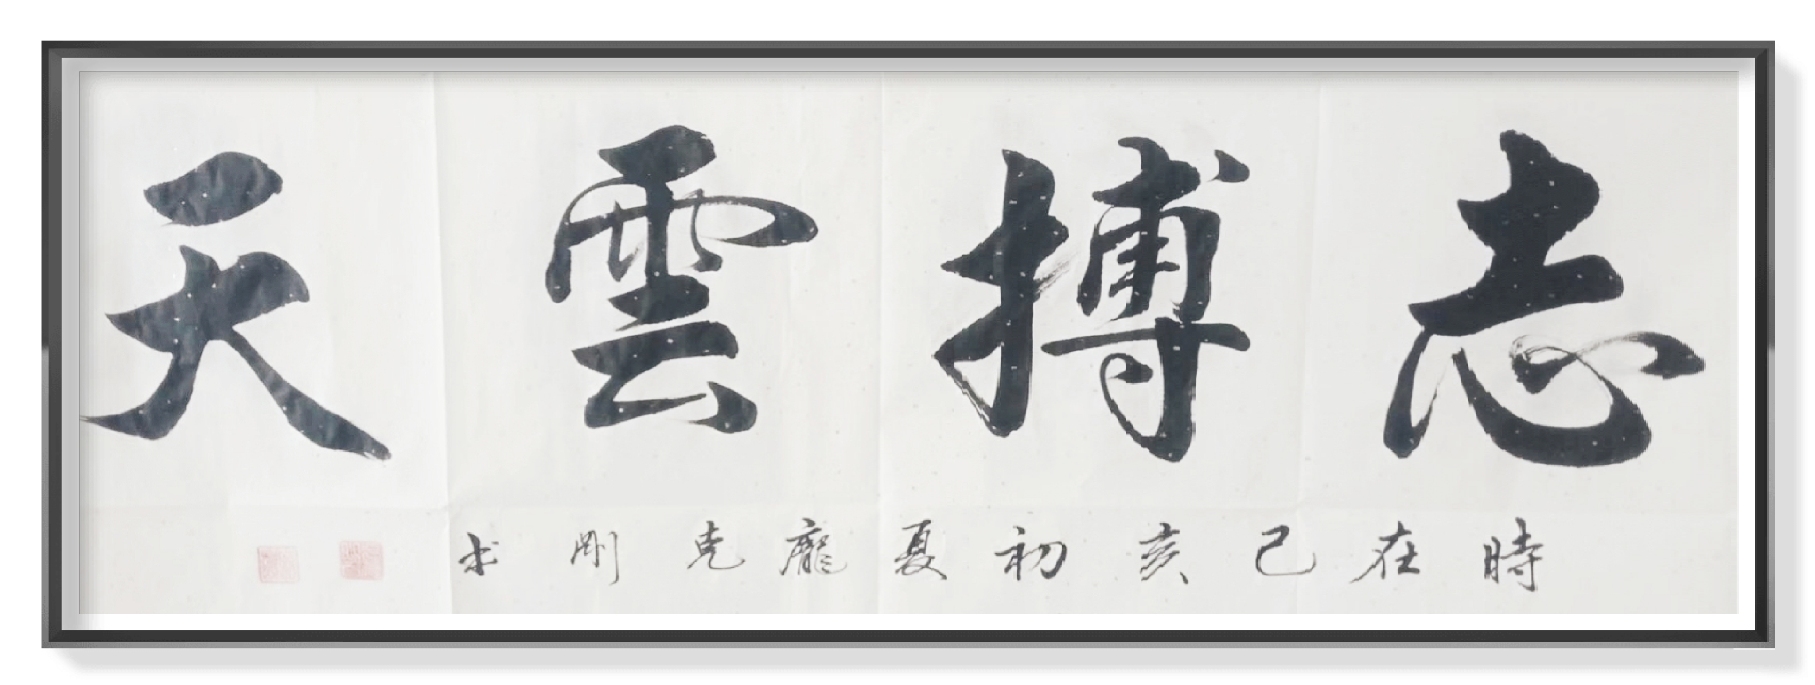 志搏雲天
時在己亥初夏龐克剛书